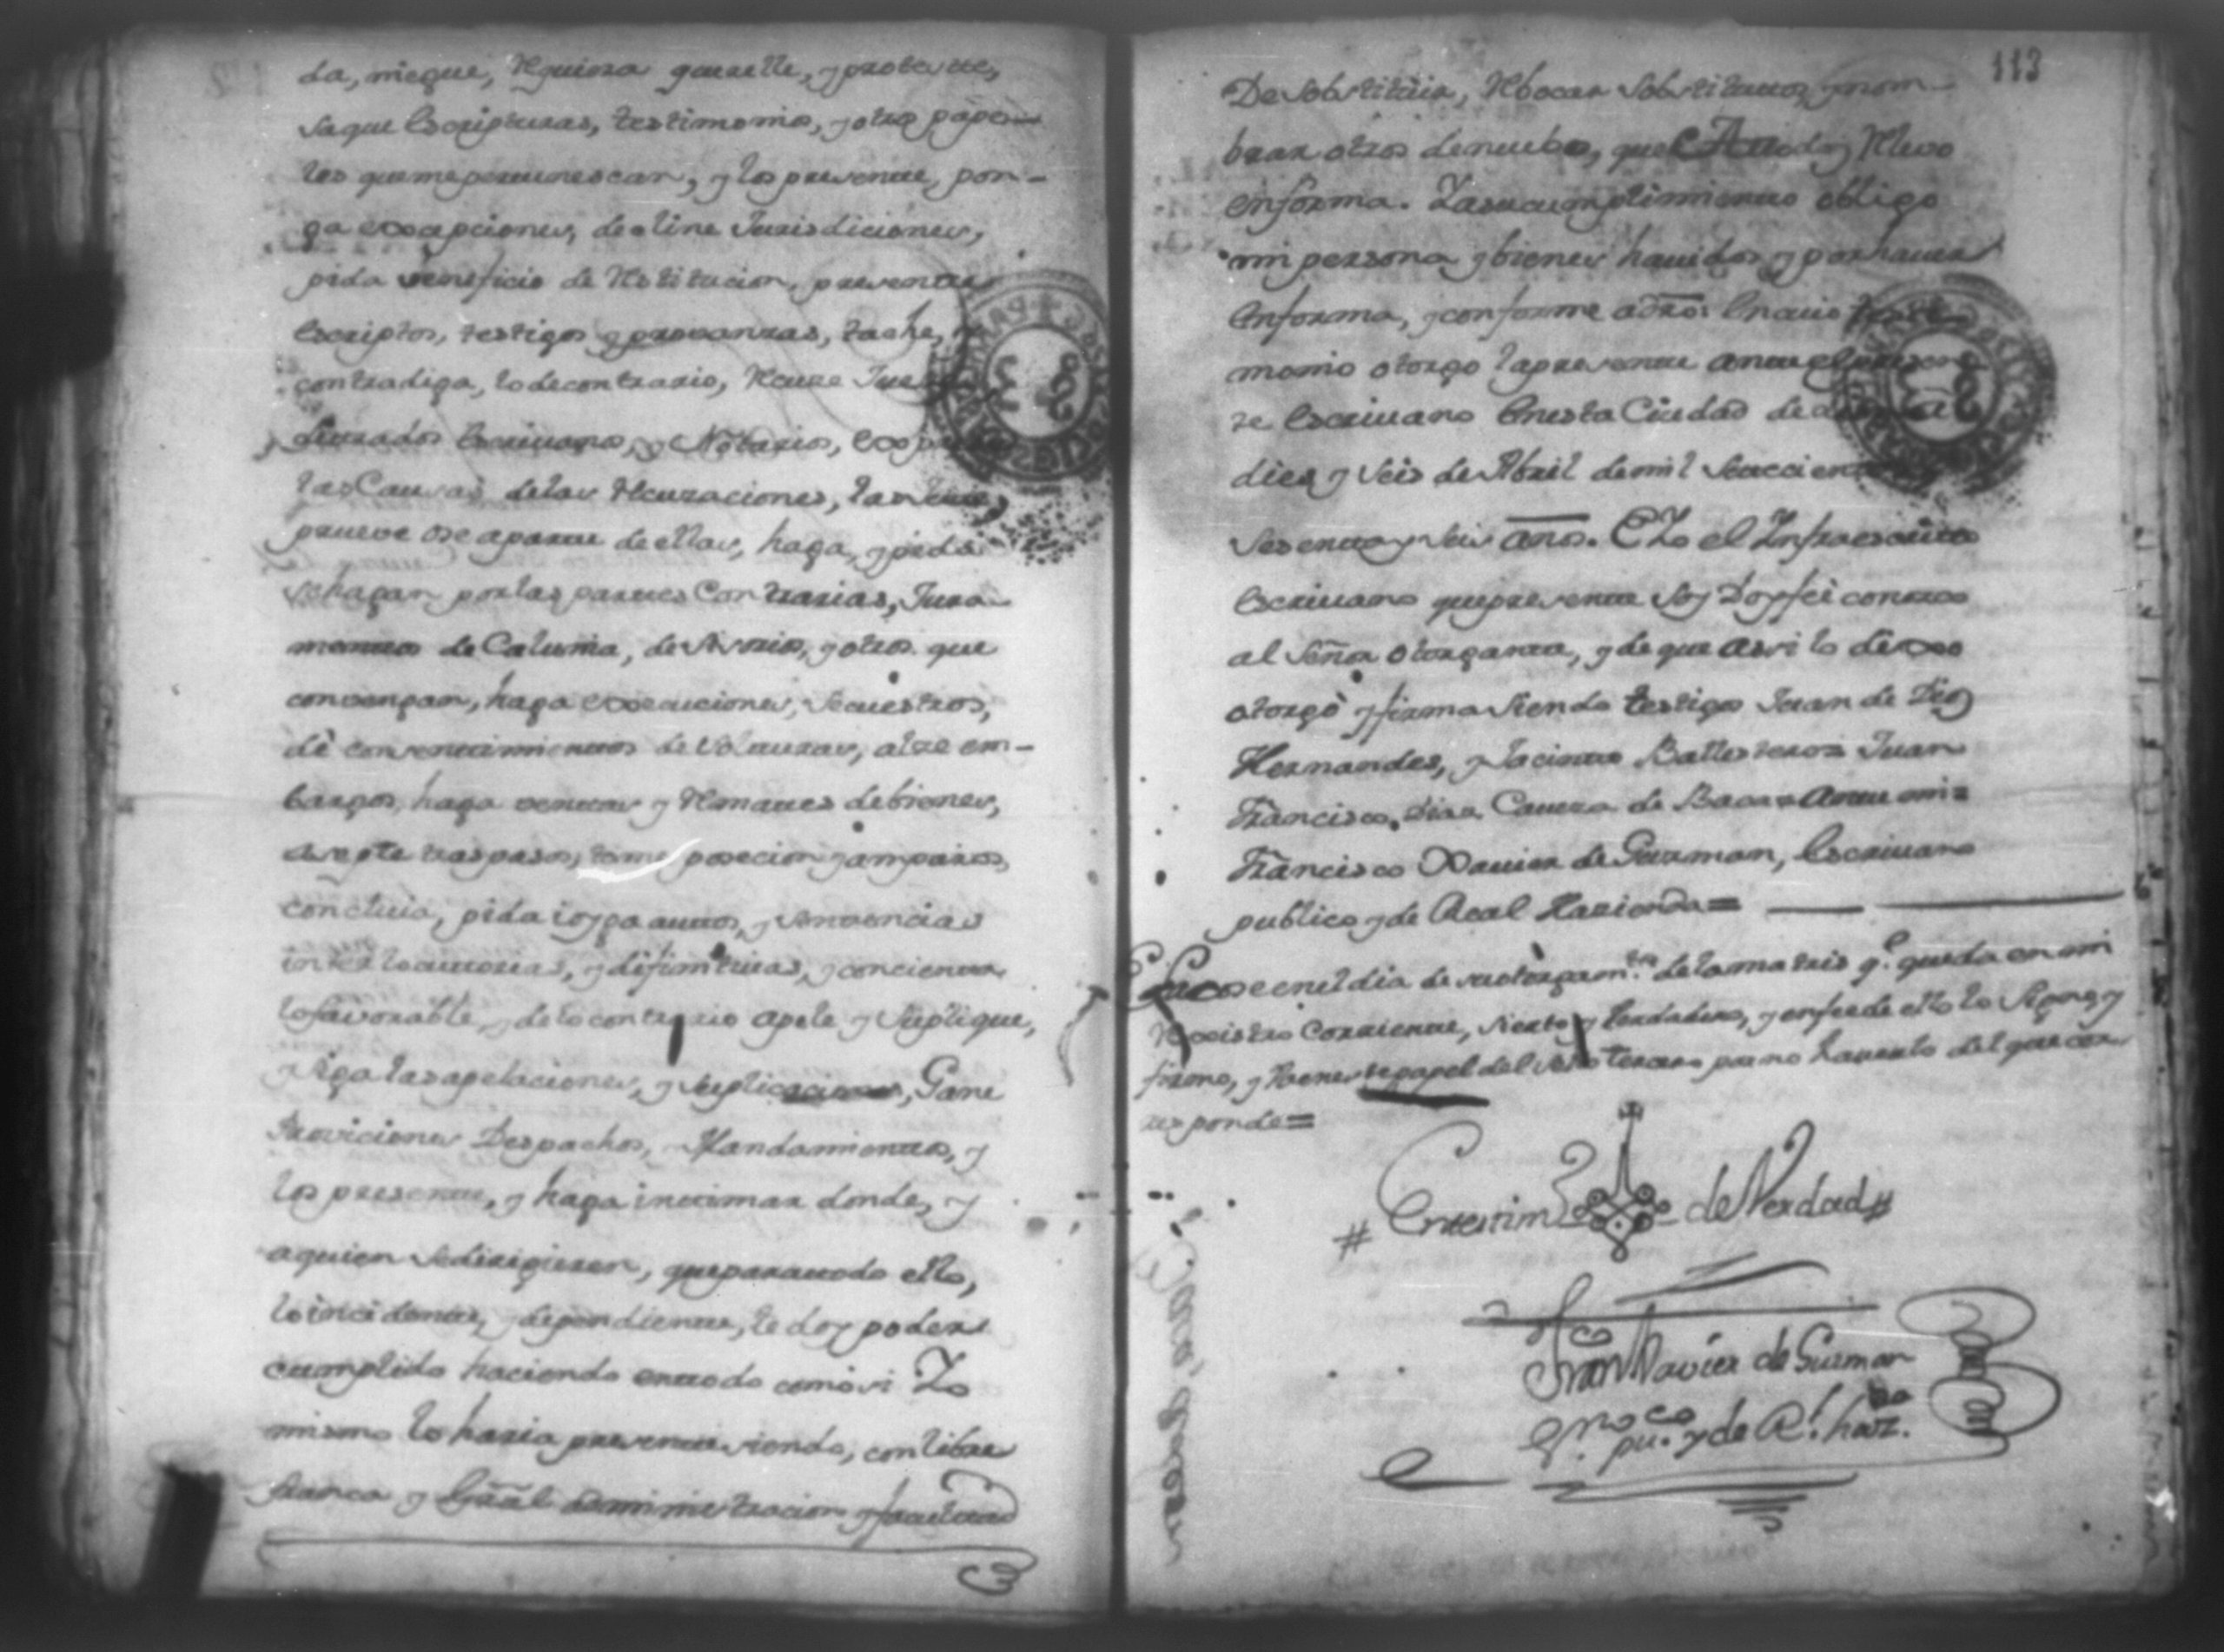 da, niegue, Requiera querelle, y proteste,
saque Escripturas, testimonios, y otros pape-
les que me pertenescan, y los presente, pon-
ga excepciones, decline Jurisdiciones,
pida veneficio de Restitucion, presente
Escriptos, testigos y provanzas, tache, y
contradiga, lo de contrario, Recuse
Letrados Escrivanos, y Notarios,
las Causas de las Recuzaciones, las Jure,
prueve ose aparte de ellas, haga, y pida
se hagan por las partes Contrarias, Jura-
mentos de Calumnia, desisorio, y otros que
convengan, haga execuciones, secuestros,
dè consentimientos de solturas, alze em-
bargos, haga ventas y Remates de bienes,
acepte traspasos, tome posecion y amparos,
concluia, pida i oyga autos, y sentencias
interlocutorias, y difinitivas, y conciente
lo favorable, y de lo contrario apele y suplique,
y siga las apelaciones, y suplicaciones, Gane
Proviciones Despachos, Mandamientos, y
los presente, y haga intimar donde, y
a quien se dirigieren, que para todo ello,
lo incidente, y dependiente, le doy poder
cumplido haciendo en todo como si Yo
mismo lo haria presente siendo, con libre
franca y Grãl administracion y facultad
113
De sobstituir, Rebocar sobstitutos, y nom-
brar otros de nuebo, que à todos Relevo
en forma. Y a su cumplimiento obligo
mi persona y bienes havidos y por haver
en forma, y conforme a dro: En cuio
monio otorgo la presente ante el presen-
te Escrivano En esta Ciudad de
dies y seis de Abril de mil setecien
sesenta y seis años. E Yo el Infraescrito
Escrivano que presente soy Doy fèe conozco
al Señor otorgante, y de que assi lo dixo
otorgò y firma siendo testigos Juan de Dios
Hernandes, y Jacinto Ballesteros = Juan
Francisco, Dias Caveza de Baca = Ante mi =
Francisco Xavier de Guzman, Escrivano
publico y de Real Hazienda =
Sacose en el dia de su otorgam.to de la matris q.e queda en mi
Rexistro Corriente, sierto y berdadero, y en fee de ello lo signo, y
firmo, y ba en este papel del sello tercero por no haverlo del que cor-
responde =
# En testim de Verdad #
Fran.co Xavier de Guzman
S.no pu.co y de R.l haz.da